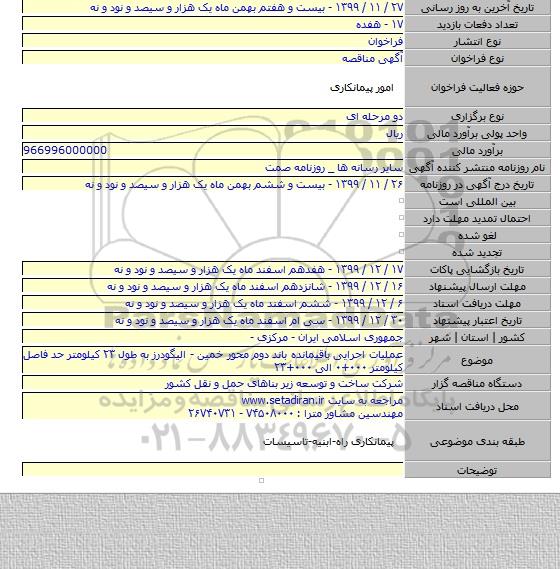 تاریخ آخرین به روز رسانی ۱۳۹۹ / ۱۱ / ۲۷ - بیست و هفتم بهمن ماه یک هزار و سیصد و نود و نه
تعداد دفعات بازدید ۱۷ - هفده
نوع انتشار فراخوان
نوع فراخوان آگهی مناقصه
حوزه فعالیت فراخوان امور پیمانکاری
نوع برگزاری دو مرحله ای
واحد پولی برآورد مالی ریال
برآورد مالی 966996000000
نام روزنامه منتشر کننده آگهی سایر رسانه ها _ روزنامه صمت
تاریخ درج آگهی در روزنامه ۱۳۹۹ / ۱۱ / ۲۶ - بیست و ششم بهمن ماه یک هزار و سیصد و نود و نه
بین المللی است
احتمال تمدید مهلت دارد
لغو شده
تجدید شده
تاریخ بازگشایی پاکات ۱۳۹۹ / ۱۲ / ۱۷ - هفدهم اسفند ماه یک هزار و سیصد و نود و نه
مهلت ارسال پیشنهاد ۱۳۹۹ / ۱۲ / ۱۶ - شانزدهم اسفند ماه یک هزار و سیصد و نود و نه
مهلت دریافت اسناد ۱۳۹۹ / ۱۲ / ۶ - ششم اسفند ماه یک هزار و سیصد و نود و نه
تاریخ اعتبار پیشنهاد ۱۳۹۹ / ۱۲ / ۳۰ - سی ام اسفند ماه یک هزار و سیصد و نود و نه
کشور | استان | شهر جمهوری اسلامی ایران - مرکزی -
موضوع عملیات اجرایی باقیمانده باند دوم محور خمین - الیگودرز به طول ۲۳ کیلومتر حد فاصل
کیلومتر ۰۰۰+۰ الی ۰۰۰+۲۳
دستگاه مناقصه گزار شرکت ساخت و توسعه زیر بناهای حمل و نقل کشور
محل دریافت اسناد مراجعه به سایت www.setadiran.ir
مهندسین مشاور مترا : ۷۴۵۰۸۰۰۰ - ۲۶۷۴۰۷۳۱
طبقه بندی موضوعی پیمانکاری راه-ابنیه-تاسیسات
توضیحات
۰۲۱-۸۸۳۴۹۶۷۰-۵